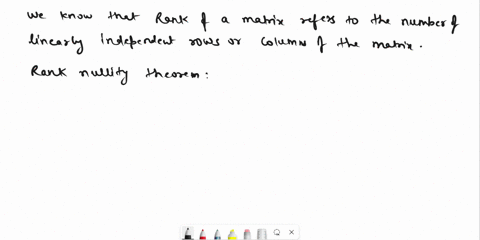 We know that Rank of a matrix refers to the number of
linearly independent rows or columns of the matrix.
Rank nullity theorem: